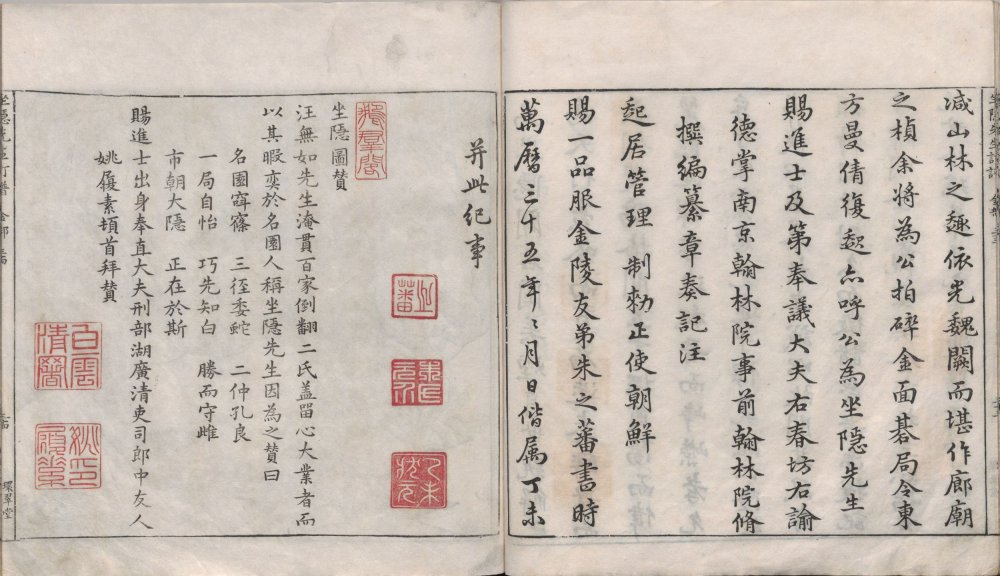 减山林之趣依光魏闕而堪作廊廟
之楨余將為公拍碎金面碁局令東
方曼倩復起亦呼公為坐隱先生
賜進士及第奉議大夫右春坊右諭
德掌南京翰林院事前翰林院脩
撰編纂章奏記注
起居管理制勑正使朝鮮
賜一品服金陵友弟朱之蕃書時
萬曆三十五年〻月日偕属丁未
并此纪事
之蕃
朱氏元介
乙未狀元
鵝羣閣
坐隱圖贊
汪無如先生淹貫百家倒翻二氏盖畱心大業者而
以其暇奕於名園人稱坐隱先生因為之贊曰
名園窅窱 三徑委蛇 二仲孔良
一局自怡 巧先知白 勝而守雌
市朝大隱 正在於斯
賜進士出身奉直大夫刑部湖廣清吏司郎中友人
姚履素頓首拜贊
白雲清署
姚印履素
環翠堂